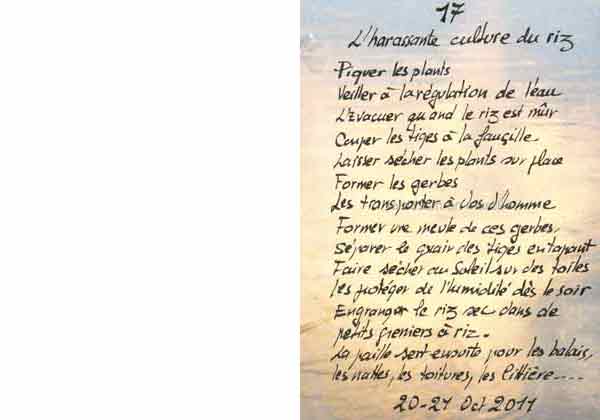 17
L'harassante culture du riz
Piquer les plants
Veiller à la régulation de l'eau
L'Evacuer quand le riz est mûr
Couper les tiges à la faucille
Laisser sécher les plants sur place
Former les gerbes
Les transporter à dos d'homme
Former une meule de ces gerbes.
Séparer le grain des tiges en tapant
Faire sécher au Soleil sur des toiles
les protéger de l'humidité dès le soir
Engranger le riz sec dans de
petits greniers à riz.
La paille sert ensuite pour les balais,
les nattes, les toitures, les littière....
20-21 Oct 2011